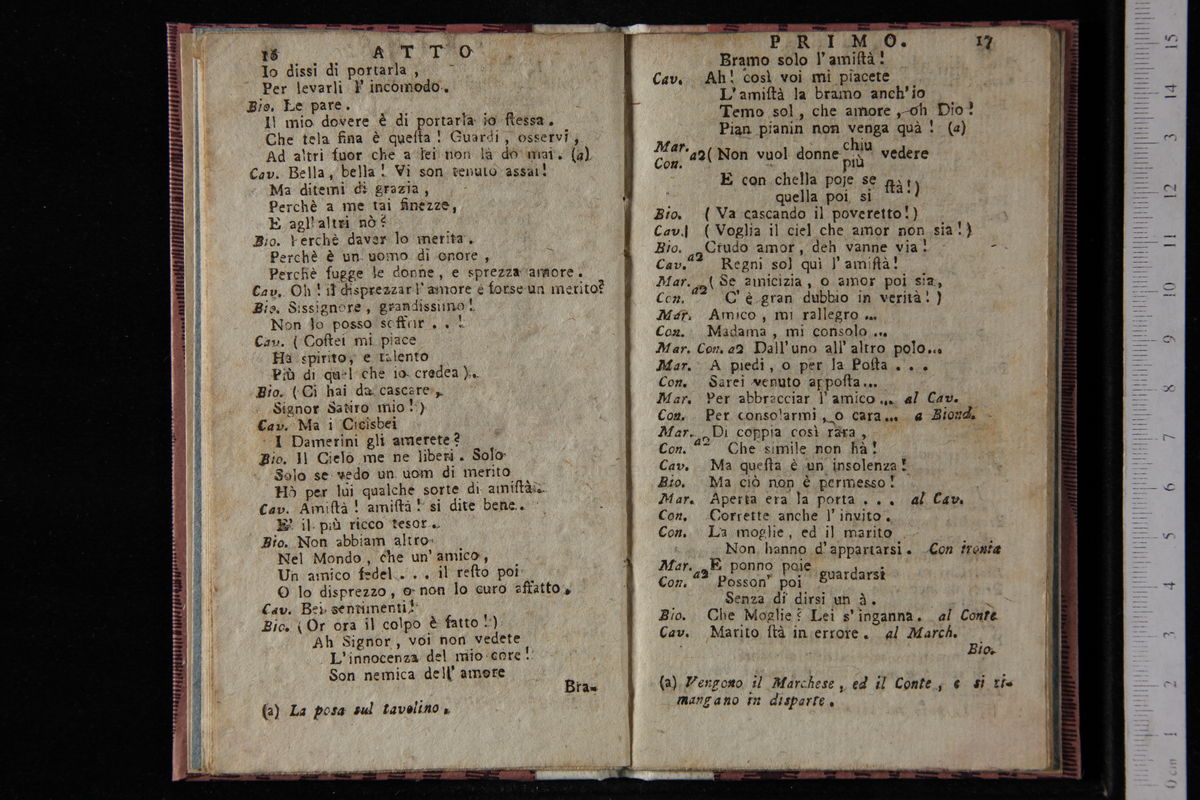 16 ATTO
Io dissi di portarla,
Per levarli l'incomodo.
Bio. Le pare.
Il mio dovere è di portarla io ſteſſa.
Che tela fina è queſta! Guardi, oſſervi,
Ad altri fuor che a lei non la dò mai. (a)
Cav. Bella, bella! Vi son tenuto assai!
Ma ditemi di grazia,
Perchè a me tai finezze,
E agl'altri nò?
Bio. Perchè daver lo merita.
Perchè è un uomo di onore,
Perchè fugge le donne, e sprezza amore.
Cav. Oh! il disprezzar l'amore è forse un merito?
Bio. Sissignore, grandissimo!
Non lo posso soffrir . . !
Cav. (Coſtei mi piace
Ha spirito, e talento
Più di quel che io credea).
Bio. (Ci hai da cascare,
Signor Satiro mio!)
Cav. Ma i Cicisbei
I Damerini gli amerete?
Bio. Il Cielo me ne liberi. Solo
Solo se vedo un uom di merito
Hò per lui qualche sorte di amiſtà.
Cav. Amiſtà! amiſtà! si dite bene.
E' il più ricco tesor.
Bio. Non abbiam altro
Nel Mondo, che un'amico,
Un amico fedel . . . il reſto poi
O lo disprezzo, o non lo curo affatto.
Cav. Bei sentimenti!
Bio. (Or ora il colpo è fatto!)
Ah Signor, voi non vedete
L'innocenza del mio core!
Son nemica dell'amore
Bra-
(a) La posa sul tavolino.
PRIMO. 17
Bramo solo l'amiſtà!
Cav. Ah! così voi mi piacete
L'amiſtà la bramo anch'io
Temo sol, che amore, oh Dio!
Pian pianin non venga quà! (a)
Mar. Con. a2 (Non vuol donne chiu più vedere
E con chella poje se quella poi si ſtà!)
Bio. (Va cascando il poveretto!)
Cav. (Voglia il ciel che amor non sia!)
Bio. Crudo amor, deh vanne via!
Cav. a2 Regni sol quì l'amiſtà!
Mar. (Se amicizia, o amor poi sia,
Con. a2 C'è gran dubbio in verità!)
Mar. Amico, mi rallegro ...
Con. Madama, mi consolo ...
Mar. Con. a2 Dall'uno all'altro polo...
Mar. A piedi, o per la Poſta . . .
Con. Sarei venuto appoſta...
Mar. Per abbracciar l'amico ... al Cav.
Con. Per consolarmi, o cara... a Biond.
Mar. Di coppia così rara,
Con. a2 Che simile non hà!
Cav. Ma queſta è un insolenza!
Bio. Ma ciò non è permesso!
Mar. Aperta era la porta . . . al Cav.
Con. Corrette anche l'invito.
Con. La moglie, ed il marito
Non hanno d'appartarsi. Con ironia
Mar. E ponno poje
Con. a2 Posson' poi guardarsi
Senza di dirsi un à.
Bio. Che Moglie? Lei s'inganna. al Conte
Cav. Marito ſtà in errore. al March.
Bio.
(a) Vengono il Marchese, ed il Conte, e si ri-
mangano in disparte.